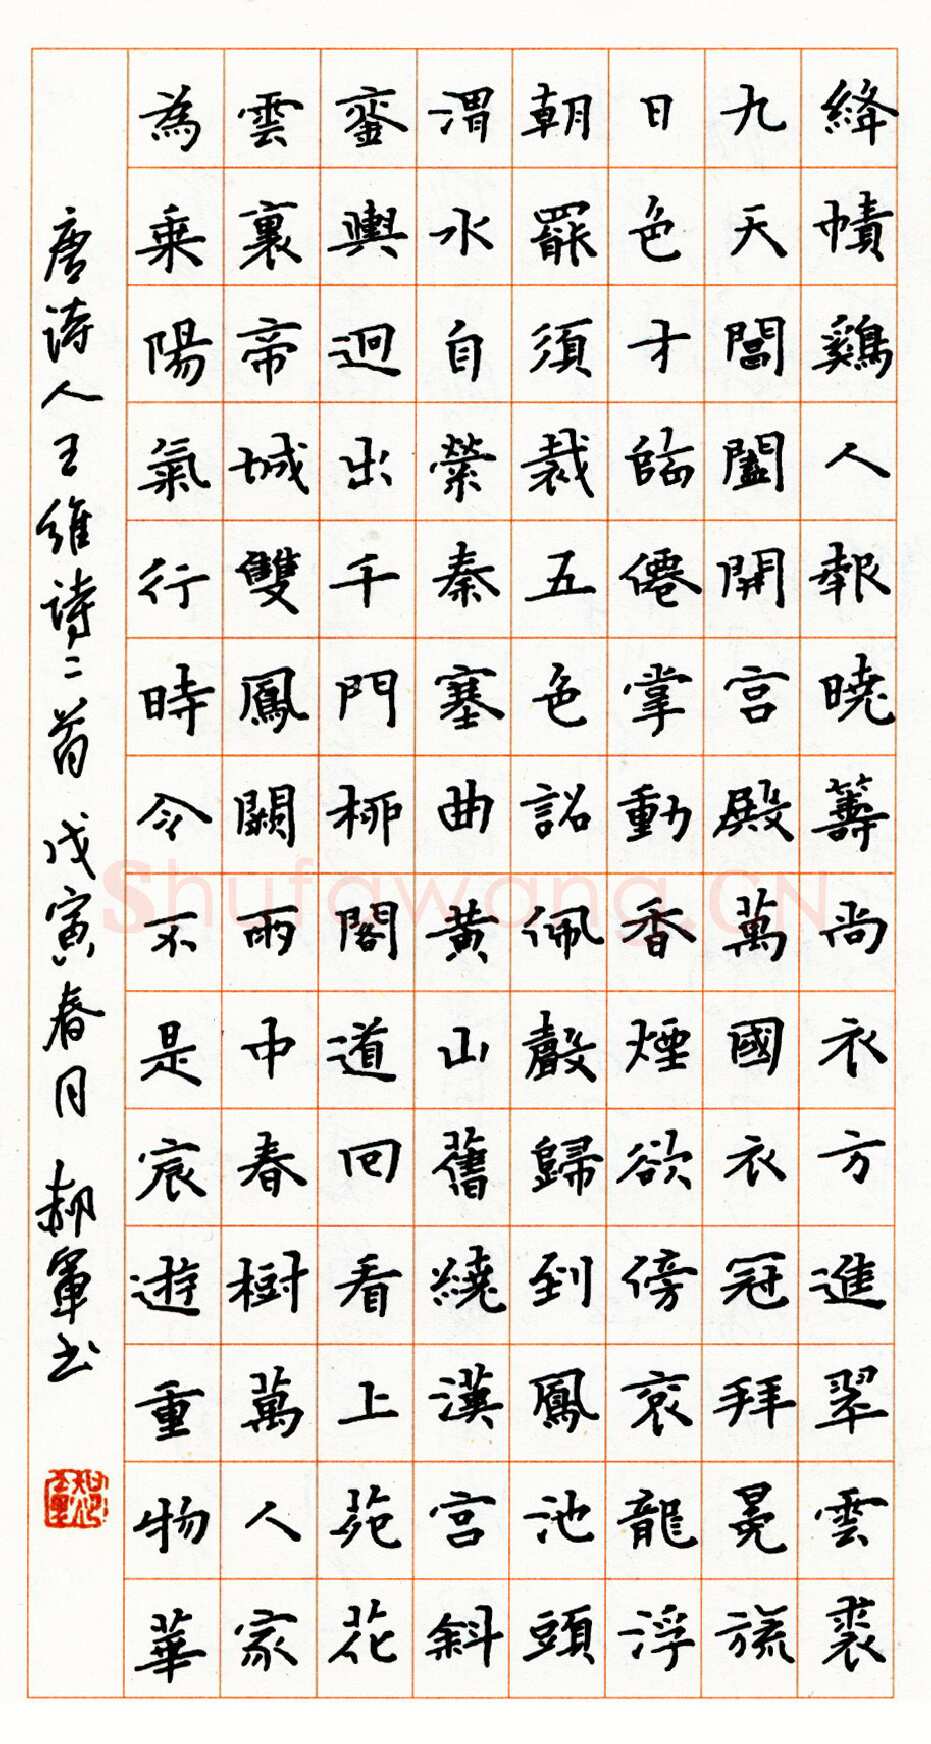 絳幘鷄人報曉籌尚衣方進翠雲裘
九天閶闔開宮殿萬國衣冠拜冕旒
日色才臨僊掌動香煙欲傍袞龍浮
朝罷須裁五色詔佩聲歸到鳳池頭
渭水自縈秦塞曲黃山舊繞漢宮斜
鑾輿迥出千門柳閣道回看上苑花
雲裏帝城雙鳳闕雨中春樹萬人家
為乘陽氣行時令不是宸遊重物華
唐诗人王維诗二首 戊寅春月 郝軍书
Shufawang.CN